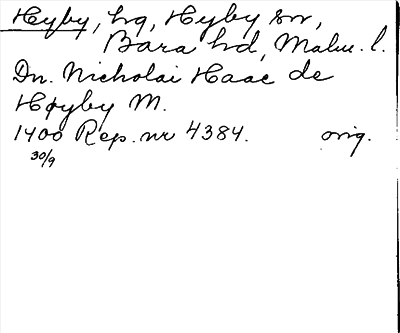 Hyby, hg, Hyby sn,
Bara hd, Malm. l.
Dn. Nicholai Haac de
Høyby M.
1400 Rep. nr 4384. orig.
30/9